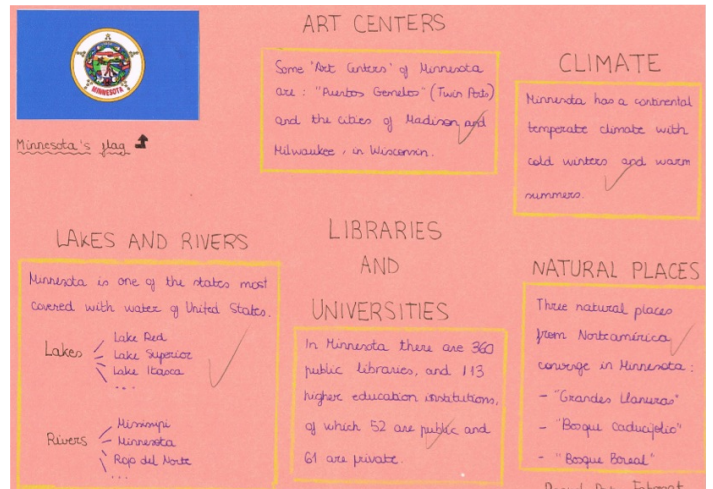 MINNESOTA
Minnesota's flag
ART CENTERS
Some 'Art Centers' of Minnesota
are: "Puertos Gemelos" (Twin Ports)
and the cities of Madison and
Milwaukee, in Wisconsin.
CLIMATE
Minnesota has a continental
temperate climate with
cold winters and warm
summers.
LAKES AND RIVERS
Minnesota is one of the states most
covered with water of United States.
Lakes
Lake Red
Lake Superior
Lake Itasca
...
Rivers
Missisipi
Minnesota
Rojo del Norte
...
LIBRARIES
AND
UNIVERSITIES
In Minnesota there are 360
public libraries, and 113
higher education institutions,
of which 52 are public and
61 are private.
NATURAL PLACES
Three natural places
from Norteamérica
converge in Minnesota:
- "Grandes Llanuras"
- "Bosque Caducifolio"
- "Bosque Boreal"